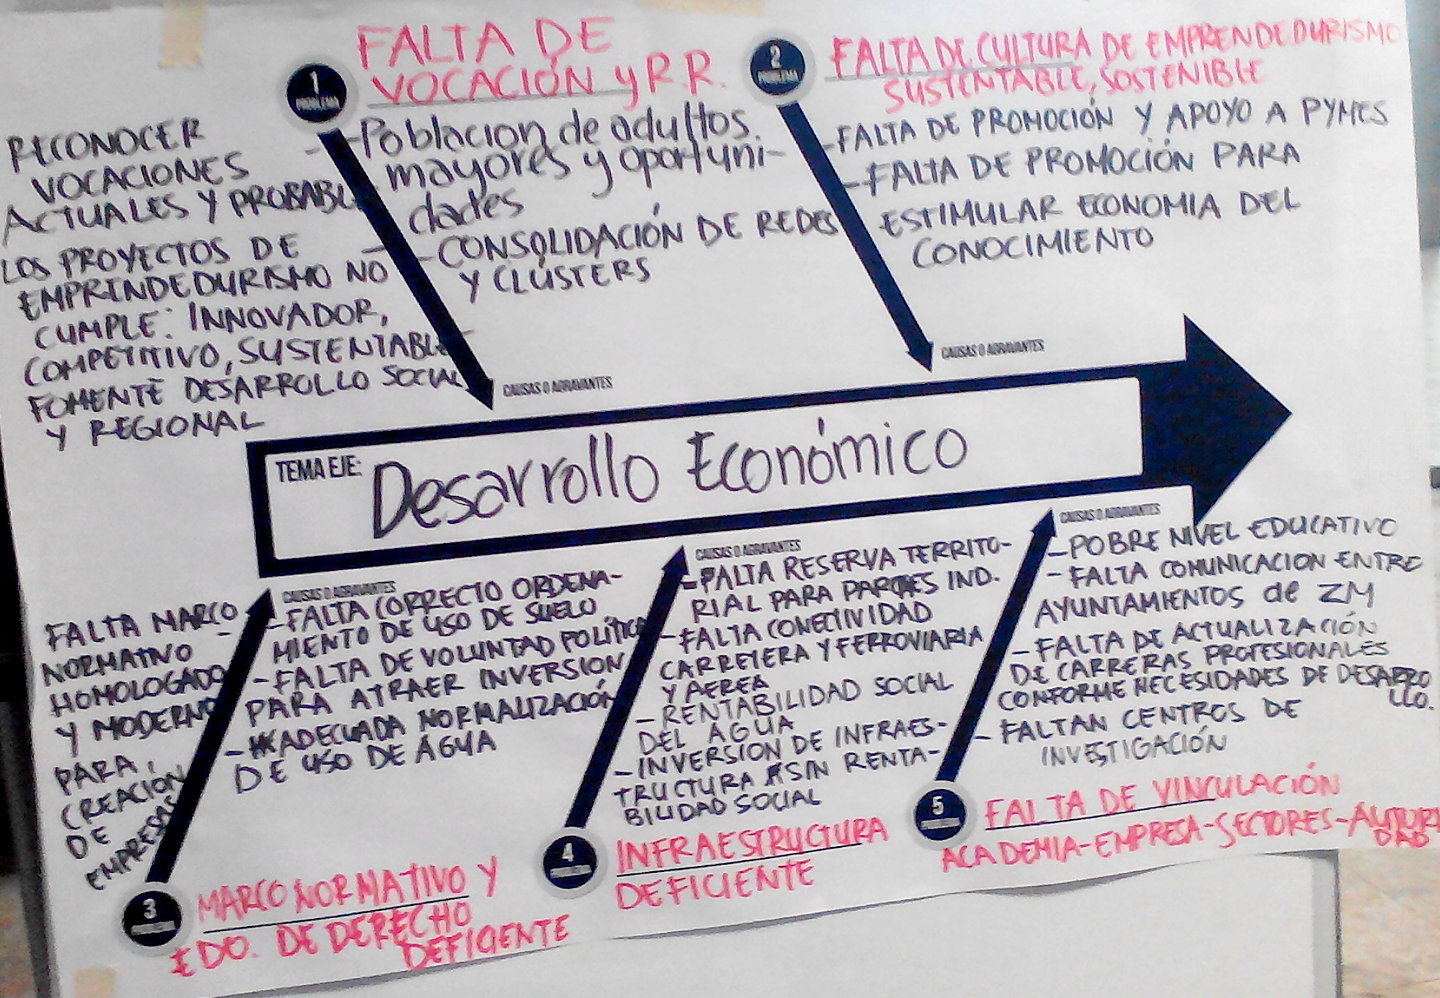 1
PROBLEMA
FALTA DE
VOCACIÓN y R.R.
RECONOCER
VOCACIONES
ACTUALES Y PROBABL
LOS PROYECTOS DE
EMPRENDEDURISMO NO
CUMPLE: INNOVADOR,
COMPETITIVO, SUSTENTABLE
FOMENTE DESARROLLO SOCIAL
Y REGIONAL
- Poblacion de adultos
mayores y oportuni-
dades
- CONSOLIDACIÓN DE REDES
Y CLÚSTERS
CAUSAS O AGRAVANTES
2
PROBLEMA
FALTA DE CULTURA DE EMPRENDEDURISMO
SUSTENTABLE, SOSTENIBLE
- FALTA DE PROMOCIÓN Y APOYO A PYMES
- FALTA DE PROMOCIÓN PARA
ESTIMULAR ECONOMIA DEL
CONOCIMIENTO
CAUSAS O AGRAVANTES
TEMA EJE: Desarrollo Económico
CAUSAS O AGRAVANTES
FALTA MARCO
NORMATIVO
HOMOLOGADO
Y MODERNO
PARA
CREACIÓN
DE
EMPRESAS
- FALTA CORRECTO ORDENA-
MIENTO DE USO DE SUELO
- FALTA DE VOLUNTAD POLÍTICA
PARA ATRAER INVERSION
- ADECUADA NORMALIZACIÓN
DE USO DE AGUA
3
PROBLEMA
MARCO NORMATIVO Y
EDO. DE DERECHO
DEFICIENTE
CAUSAS O AGRAVANTES
- FALTA RESERVA TERRITO-
RIAL PARA PARQUES IND.
- FALTA CONECTIVIDAD
CARRETERA Y FERROVIARIA
Y AEREA
- RENTABILIDAD SOCIAL
DEL AGUA
- INVERSIÓN DE INFRAES-
TRUCTURA SIN RENTA-
BILIDAD SOCIAL
4
PROBLEMA
INFRAESTRUCTURA
DEFICIENTE
CAUSAS O AGRAVANTES
- POBRE NIVEL EDUCATIVO
- FALTA COMUNICACION ENTRE
AYUNTAMIENTOS de ZM
- FALTA DE ACTUALIZACIÓN
DE CARRERAS PROFESIONALES
CONFORME NECESIDADES DE DESARRO
LLO.
- FALTAN CENTROS DE
INVESTIGACIÓN
5
PROBLEMA
FALTA DE VINCULACIÓN
ACADEMIA-EMPRESA-SECTORES-AUTORI
DAD